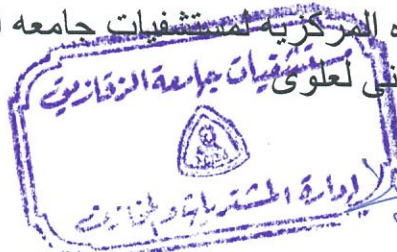 ه المركزيه لمستشفيات جامعه ا
نى لعلوى
مستشفيات جامعة الزقازيق
إدارة المشتريات والمخازن